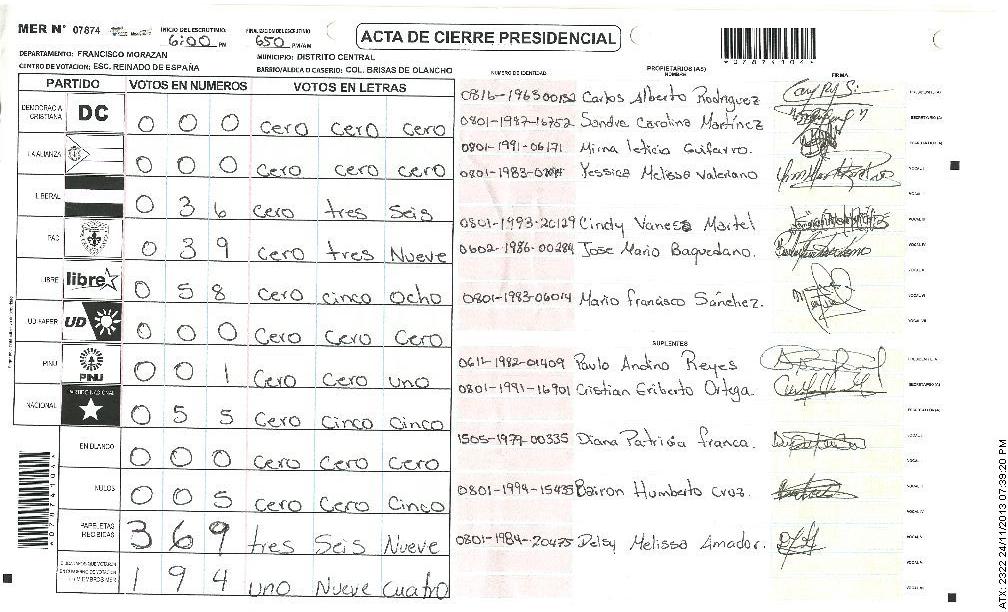 MER N° 07874
INICIO DEL ESCRUTINIO: 6:00 PM
FINALIZACION DEL ESCRUTINIO: 650 PM/AM
ACTA DE CIERRE PRESIDENCIAL
DEPARTAMENTO: FRANCISCO MORAZAN
MUNICIPIO: DISTRITO CENTRAL
CENTRO DE VOTACION: ESC. REINADO DE ESPAÑA
BARRIO/ALDEA O CASERIO: COL. BRISAS DE OLANCHO
PARTIDO VOTOS EN NUMEROS VOTOS EN LETRAS
DEMOCRACIA CRISTIANA DC 0 0 0 cero cero cero
LA ALIANZA 0 0 0 cero cero cero
LIBERAL 0 3 6 cero tres Seis
PAC 0 3 9 cero tres Nueve
LIBRE libre 0 5 8 cero cinco Ocho
UD FAPER UD 0 0 0 Cero Cero Cero
PINU PINU 0 0 1 Cero Cero uno
NACIONAL PARTIDO NACIONAL 0 5 5 Cero Cinco Cinco
EN BLANCO 0 0 0 Cero Cero Cero
NULOS 0 0 5 Cero Cero Cinco
PAPELETAS RECIBIDAS 3 6 9 tres Seis Nueve
1 9 4 uno Nueve Cuatro
NUMERO DE IDENTIDAD
PROPIETARIOS (AS)
NOMBRE
FIRMA
Carlos Alberto Rodriguez
0801-1987-16752 Sandra Carolina Martínez
0801-1991-06171 Mirna leticia Guifarro.
Yessica Melissa Valeriano
0801-1993-20129 Cindy Vanesa Martel
0602-1986-00284 Jose Mario Baquedano.
0801-1983-06014 Mario francisco Sánchez.
SUPLENTES
0611-1982-01409 Paulo Andino Reyes
0801-1991-16901 Cristian Eriberto Ortega.
1505-1977-00335 Diana Patricia franca.
0801-1994-15435 Bairon Humberto Cruz.
0801-1984-20475 Delsy Melissa Amador.
ATX: 2322 24/11/2013 07:39:20 PM